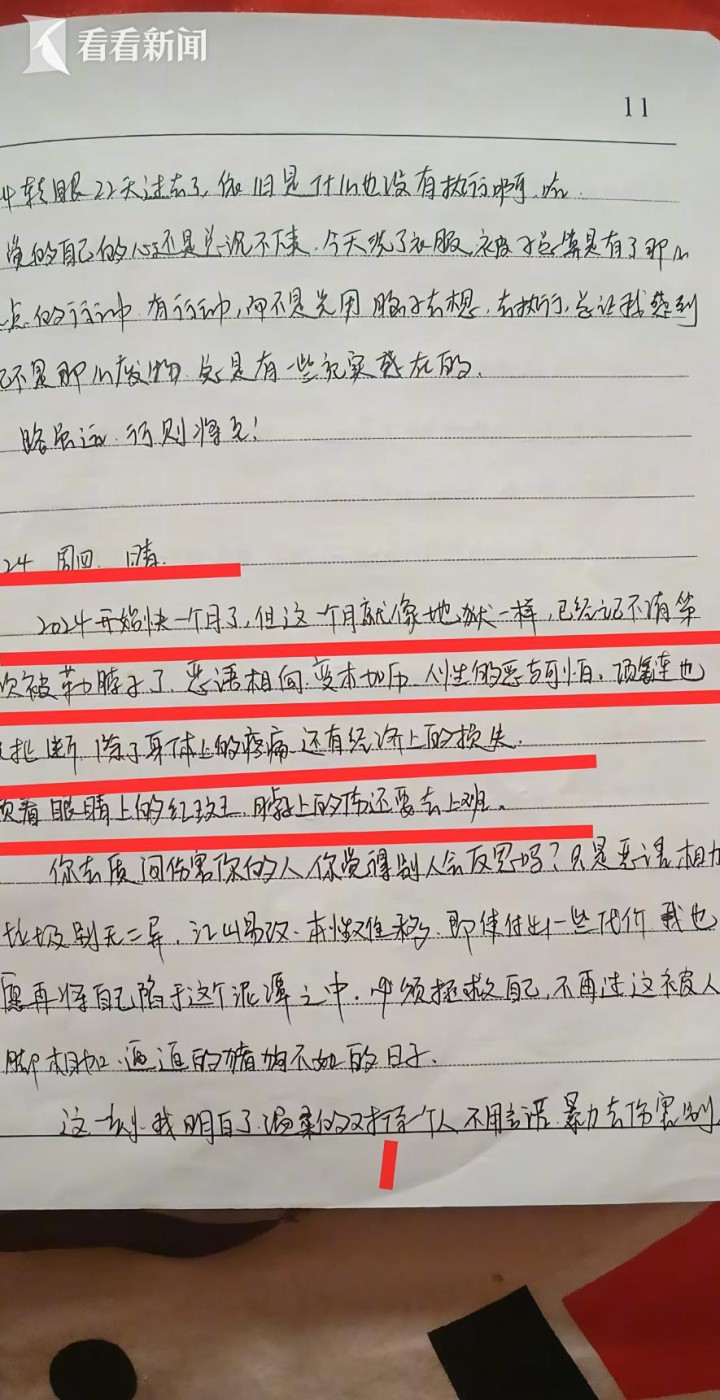 看看新闻
11
转眼22天过去了,依旧是什么也没有执行啊,哎.
觉的自己的心还是总沉不下来.今天洗了衣服,被子总算是有了那么
点的行动.有行动,而不是光用脑子去想.去执行,总让我感到
不是那么废物.总是有一些充实感在的.
路虽远.行则将至!
24 周四. 晴.
2024开始快一个月了,但这一个月就像地狱一样,已经记不清第
次被勒脖子了.恶语相向.变本加厉.人性的恶与可怕.项链也
扯断.除了身体上的疼痛.还有经济上的损失.
顶着眼睛上的红斑.脖子上的伤还要去上班.
你去质问伤害你的人,你觉得别人会反思吗?只是恶语相加
垃圾别无二异.江山易改.本性难移.即使付出一些代价 我也
愿再将自己陷于这个泥潭之中.必须拯救自己,不再过这被人
脚相加.逼迫的猪狗不如的日子.
这一刻.我明白了.温柔的对待一个人 不用言语.暴力去伤害别